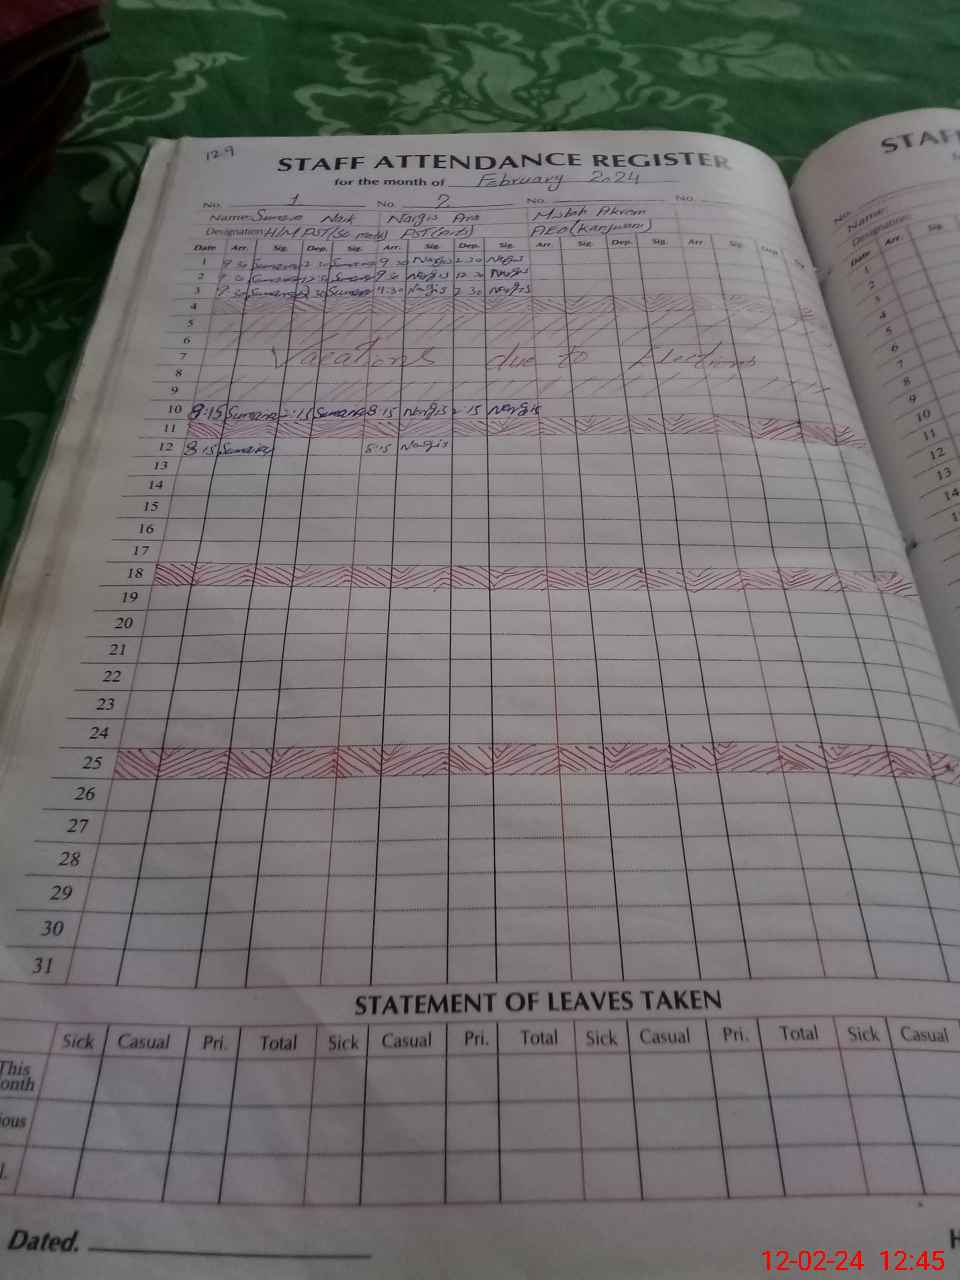 129
STAFF ATTENDANCE REGISTER
for the month of February 2024
No. 1 No. 2 No. No.
Name: Naik Nargis Ara Akram
Designation: H/M PST
Date Arr. Sig. Dep. Sig. Arr. Sig. Dep. Sig. Arr. Sig. Dep. Sig. Arr. Sig. Dep. Sig.
1 9:30 Sumaira 9:30 Nargis 2:30 Nargis
2 Sumaira Sumaira 9:30 Nargis 12:30 Nargis
3 Sumaira Sumaira 9:30 Nargis 2:30 Nargis
4
5
6
7 Vacations due to Elections
8
9
10 8:15 Sumaira 2:15 Sumaira 8:15 Nargis 2:15 Nargis
11
12 8:15 Sumaira 8:15 Nargis
13
14
15
16
17
18
19
20
21
22
23
24
25
26
27
28
29
30
31
STATEMENT OF LEAVES TAKEN
Sick Casual Pri. Total Sick Casual Pri. Total Sick Casual Pri. Total Sick Casual
This
onth
ious
l.
Dated.
H
STAF
No.
Name:
Designation:
Date Arr. Sig.
1
2
3
4
5
6
7
8
9
10
11
12
13
14
12-02-24 12:45